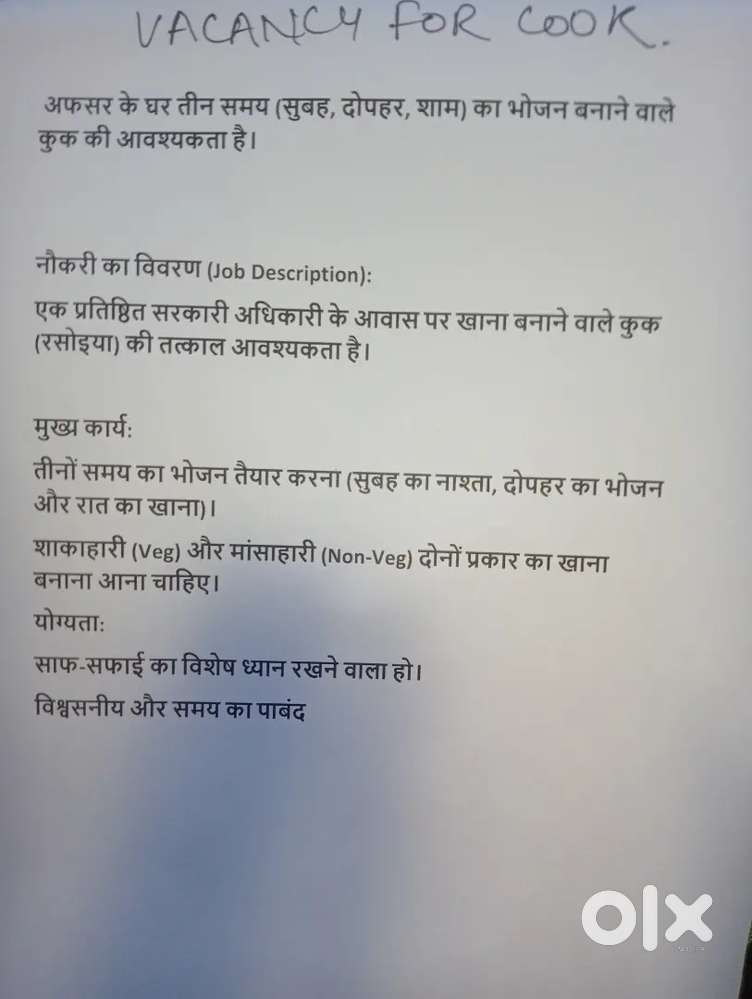 VACANCY FOR COOK.
अफसर के घर तीन समय (सुबह, दोपहर, शाम) का भोजन बनाने वाले
कुक की आवश्यकता है।
नौकरी का विवरण (Job Description):
एक प्रतिष्ठित सरकारी अधिकारी के आवास पर खाना बनाने वाले कुक
(रसोइया) की तत्काल आवश्यकता है।
मुख्य कार्य:
तीनों समय का भोजन तैयार करना (सुबह का नाश्ता, दोपहर का भोजन
और रात का खाना)।
शाकाहारी (Veg) और मांसाहारी (Non-Veg) दोनों प्रकार का खाना
बनाना आना चाहिए।
योग्यता:
साफ-सफाई का विशेष ध्यान रखने वाला हो।
विश्वसनीय और समय का पाबंद
olx